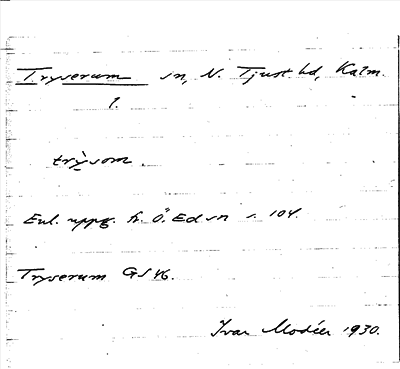 Tryserum sn, N. Tjust hd, Kalm.
l.
try̆som.
Enl. uppg. fr. Ö. Ed sn s. 104.
Tryserum GS 46.
Ivar Modéer 1930.